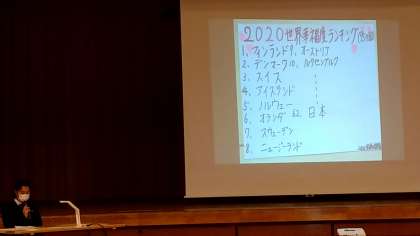 2020世界幸福度ランキング
1. フィンランド 9. オーストリア
2. デンマーク 10. ルクセンブルク
3. スイス
4. アイスランド
5. ノルウェー
6. オランダ 62. 日本
7. スウェーデン
8. ニュージーランド